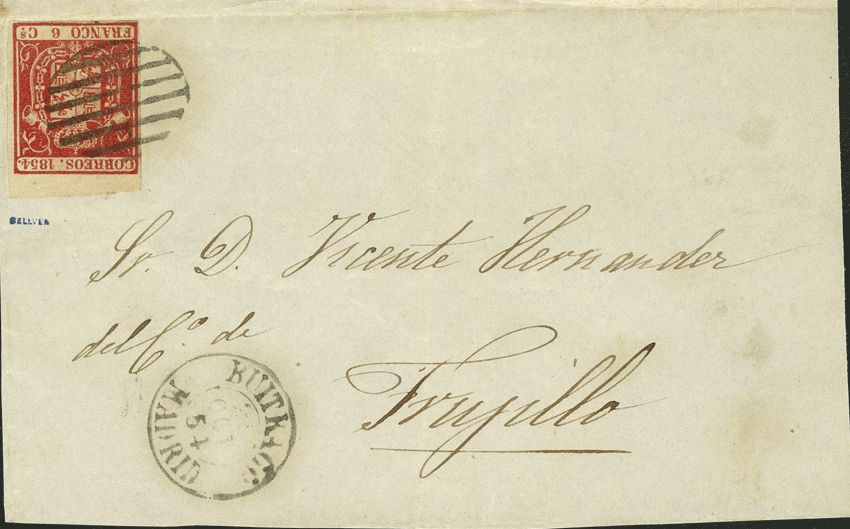 FRANCO 6 Cs
CORREOS. 1854.
BELLVER
Sr. D. Vicente Hernandez
del C.º de
Trujillo
BUITRAGO
OCT
54
MADRID